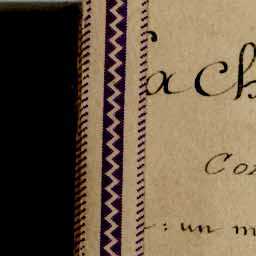 ach
Co
: un m